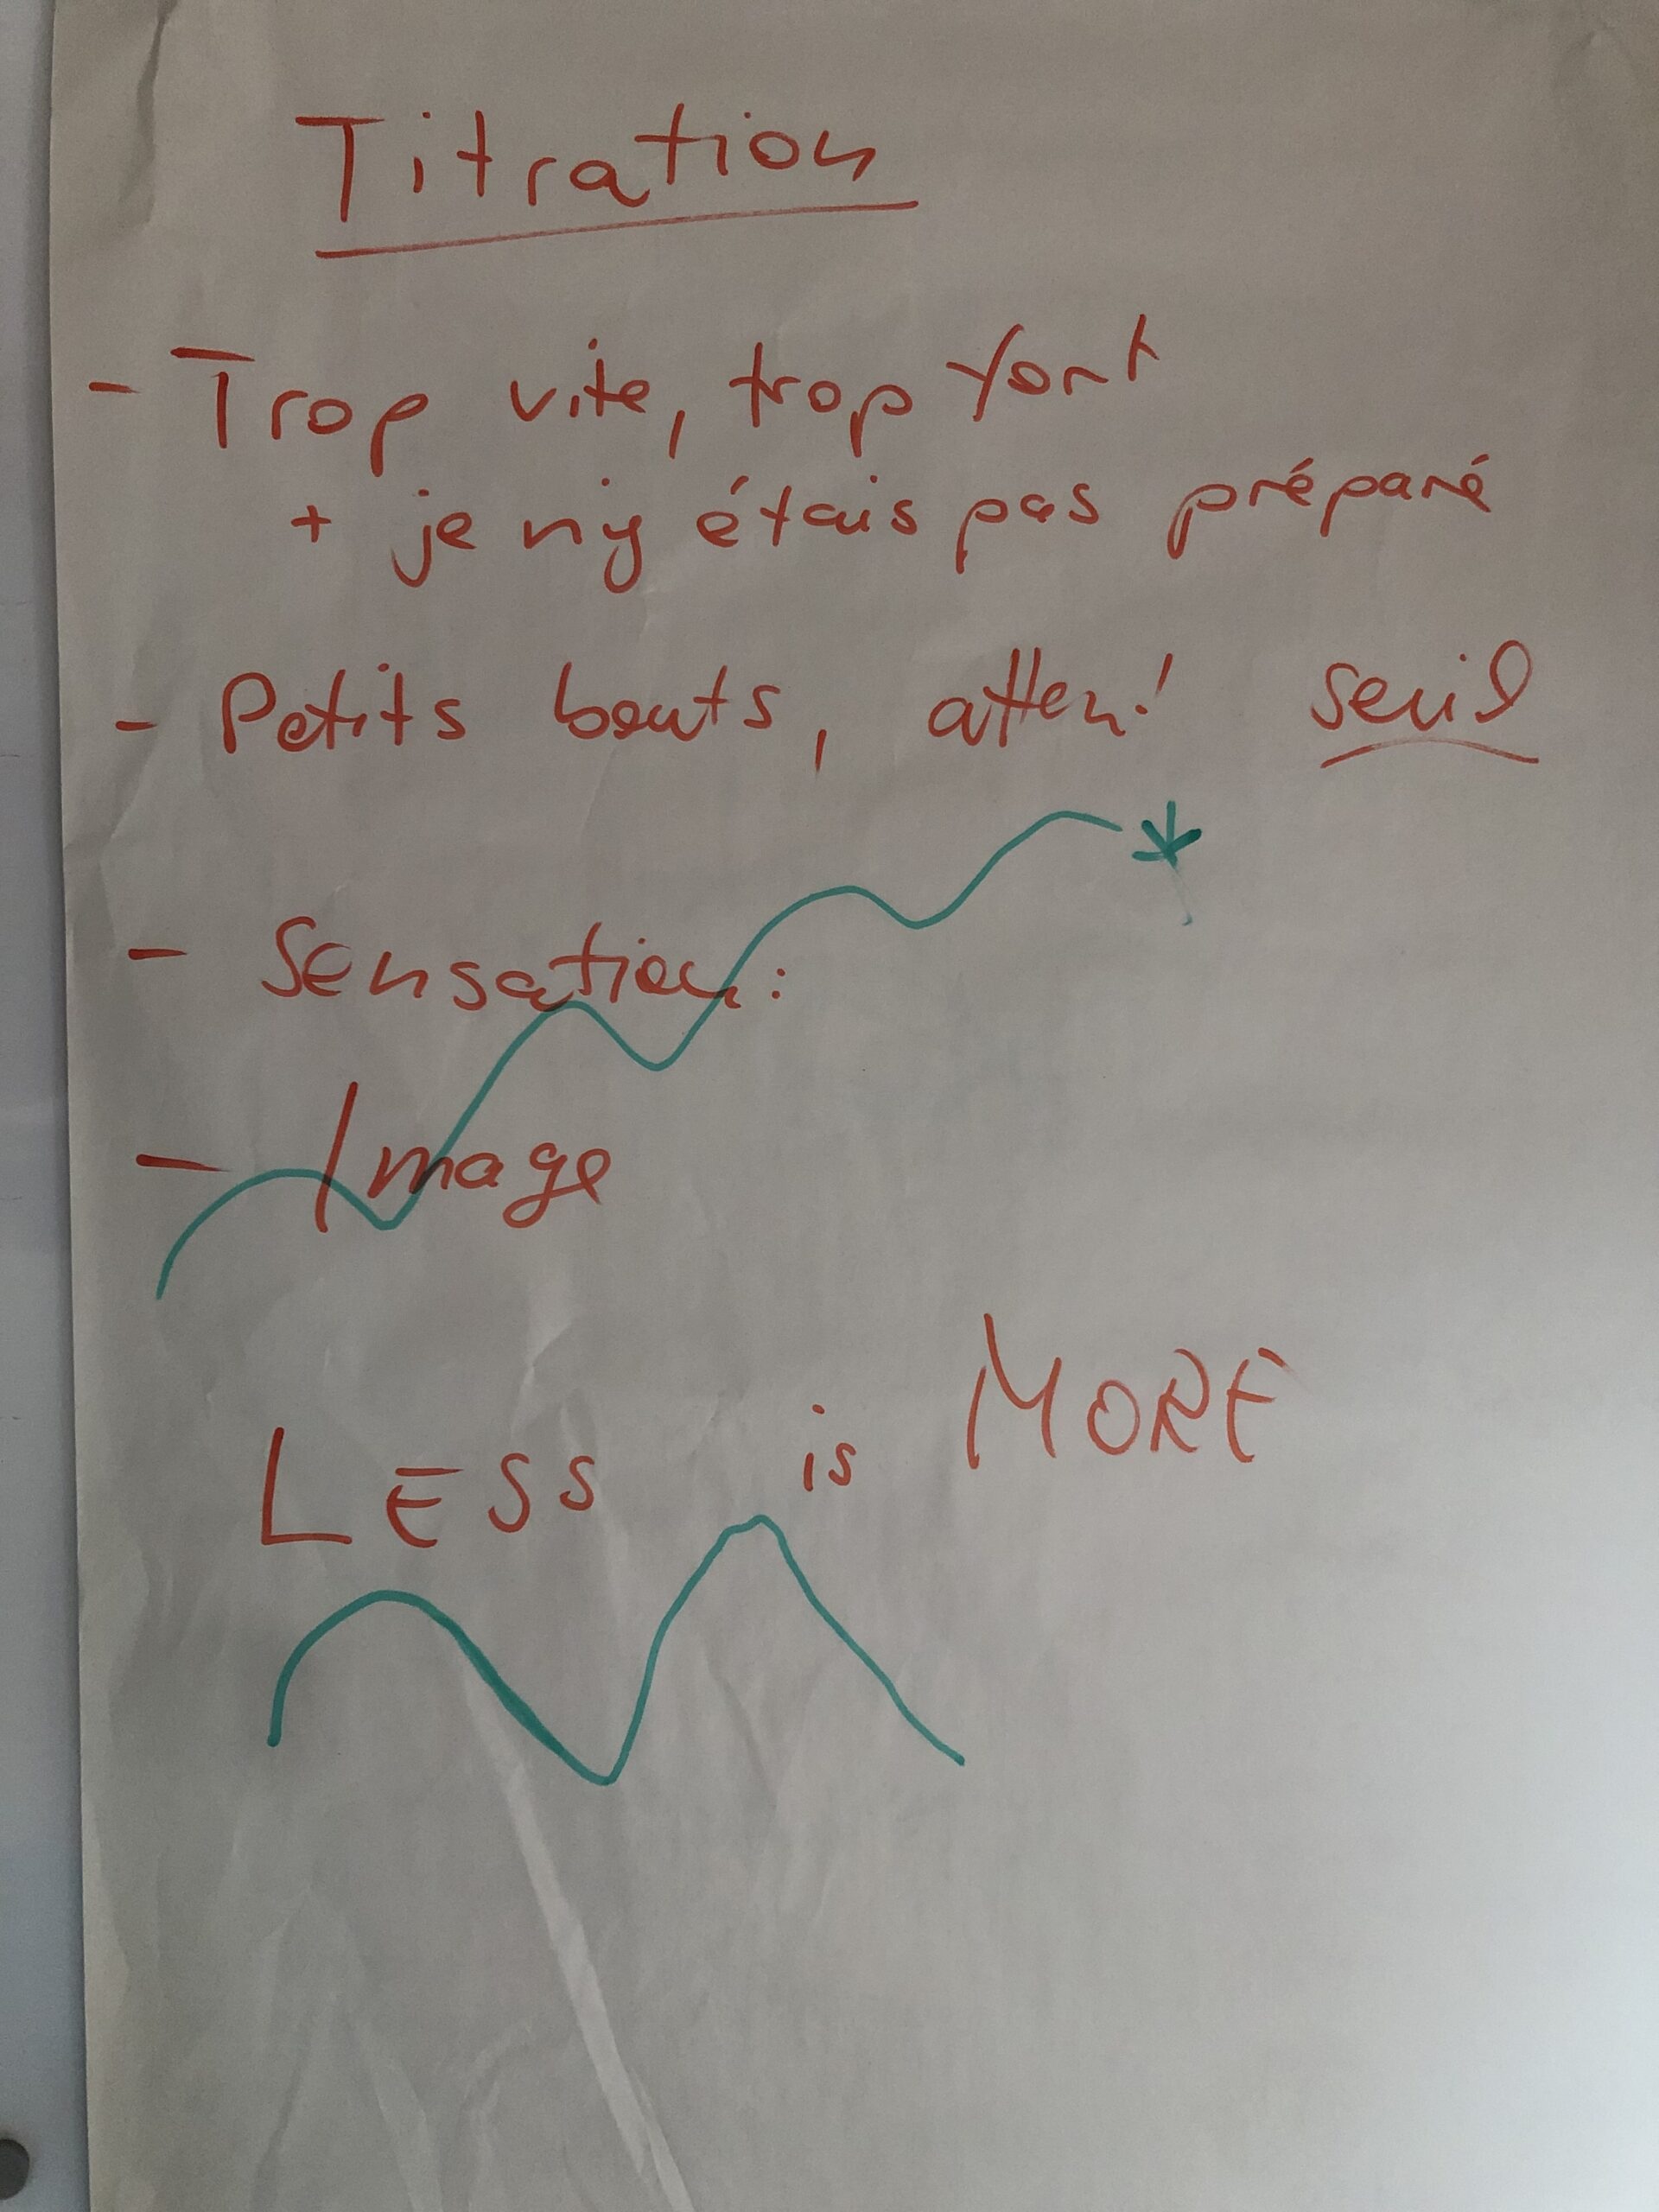 Titration
- Trop vite, trop fort
+ je n'y étais pas préparé
- Petits bouts, atten! seuil
- Sensation:
- Image
LESS is MORE